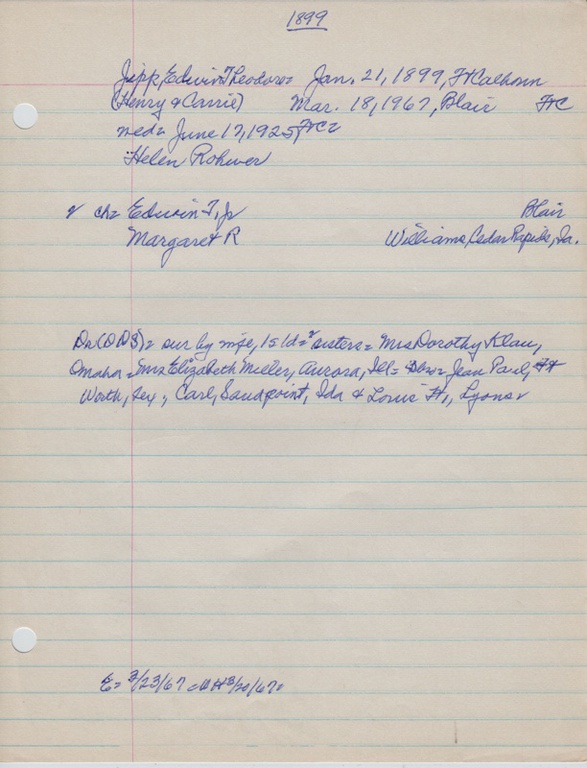 1899
Jipp, Edwin Theodore = Jan. 21, 1899, Ft Calhoun
(Henry & Carrie) Mar. 18, 1967, Blair FtC
med = June 17, 1925, FtC =
Helen Rohwer
2 ch = Edwin T, Jr Blair
Margaret R Williams, Cedar Rapids, Ia.
Dr (DDS) = sur by wife, 1s 1d = 2 sisters = Mrs Dorothy Klau,
Omaha = Mrs Elizabeth Miller, Aurora, Ill = Jean Paul, Ft
Worth, Tex, Carl, Sandpoint, Ida & Louis H, Lyons
E = 3/23/67 3/20/67